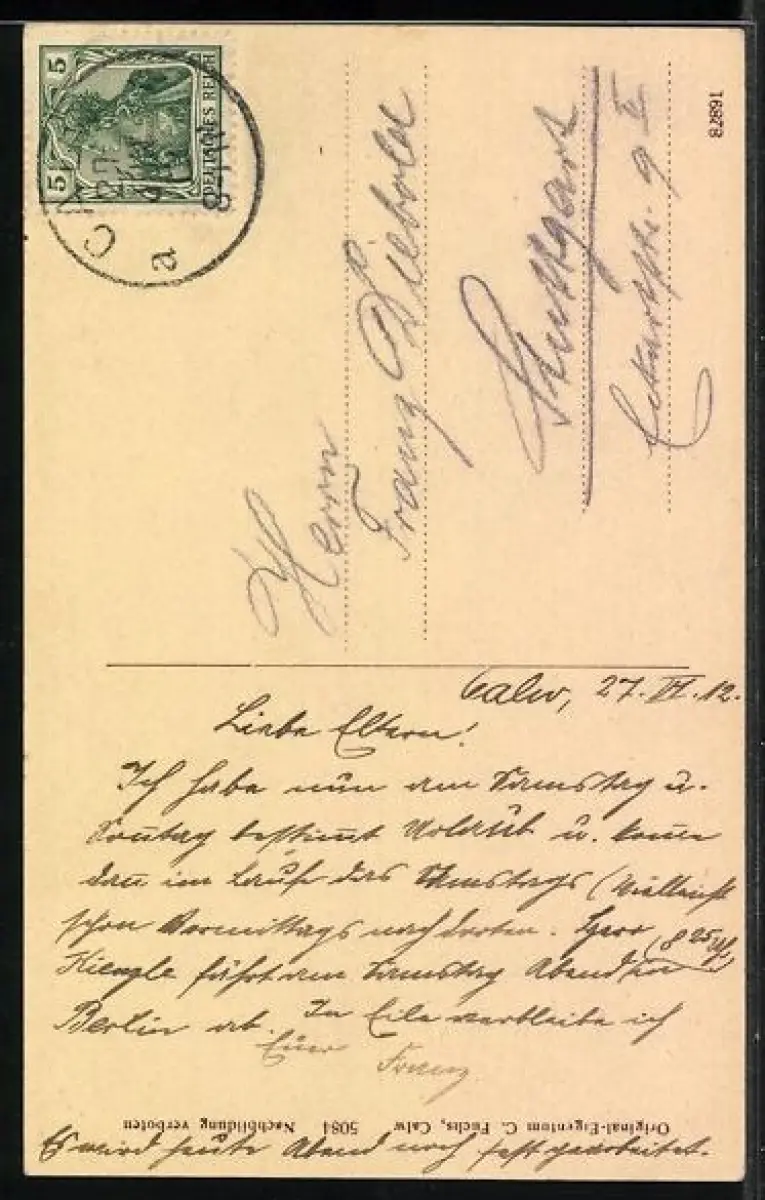 5 5
DEUTSCHES REICH
a
82891
Herrn
Franz Diebold
Stuttgart
9 II
Calw, 27. VI. 12.
Liebe Eltern!
Ich habe nun am Samstag u.
Sonntag bestimmt Urlaub u. komme
dann im Laufe des Samstags (vielleicht
schon Vormittags nach dorten. Herr (8 25 Uhr)
Kienzle fährt am Samstag Abend
Berlin ab. In Eile verbleibe ich
Euer Franz.
Original-Eigentum C. Fuchs, Calw 5084 Nachbildung verboten
Es wird heute Abend noch fest gearbeitet.